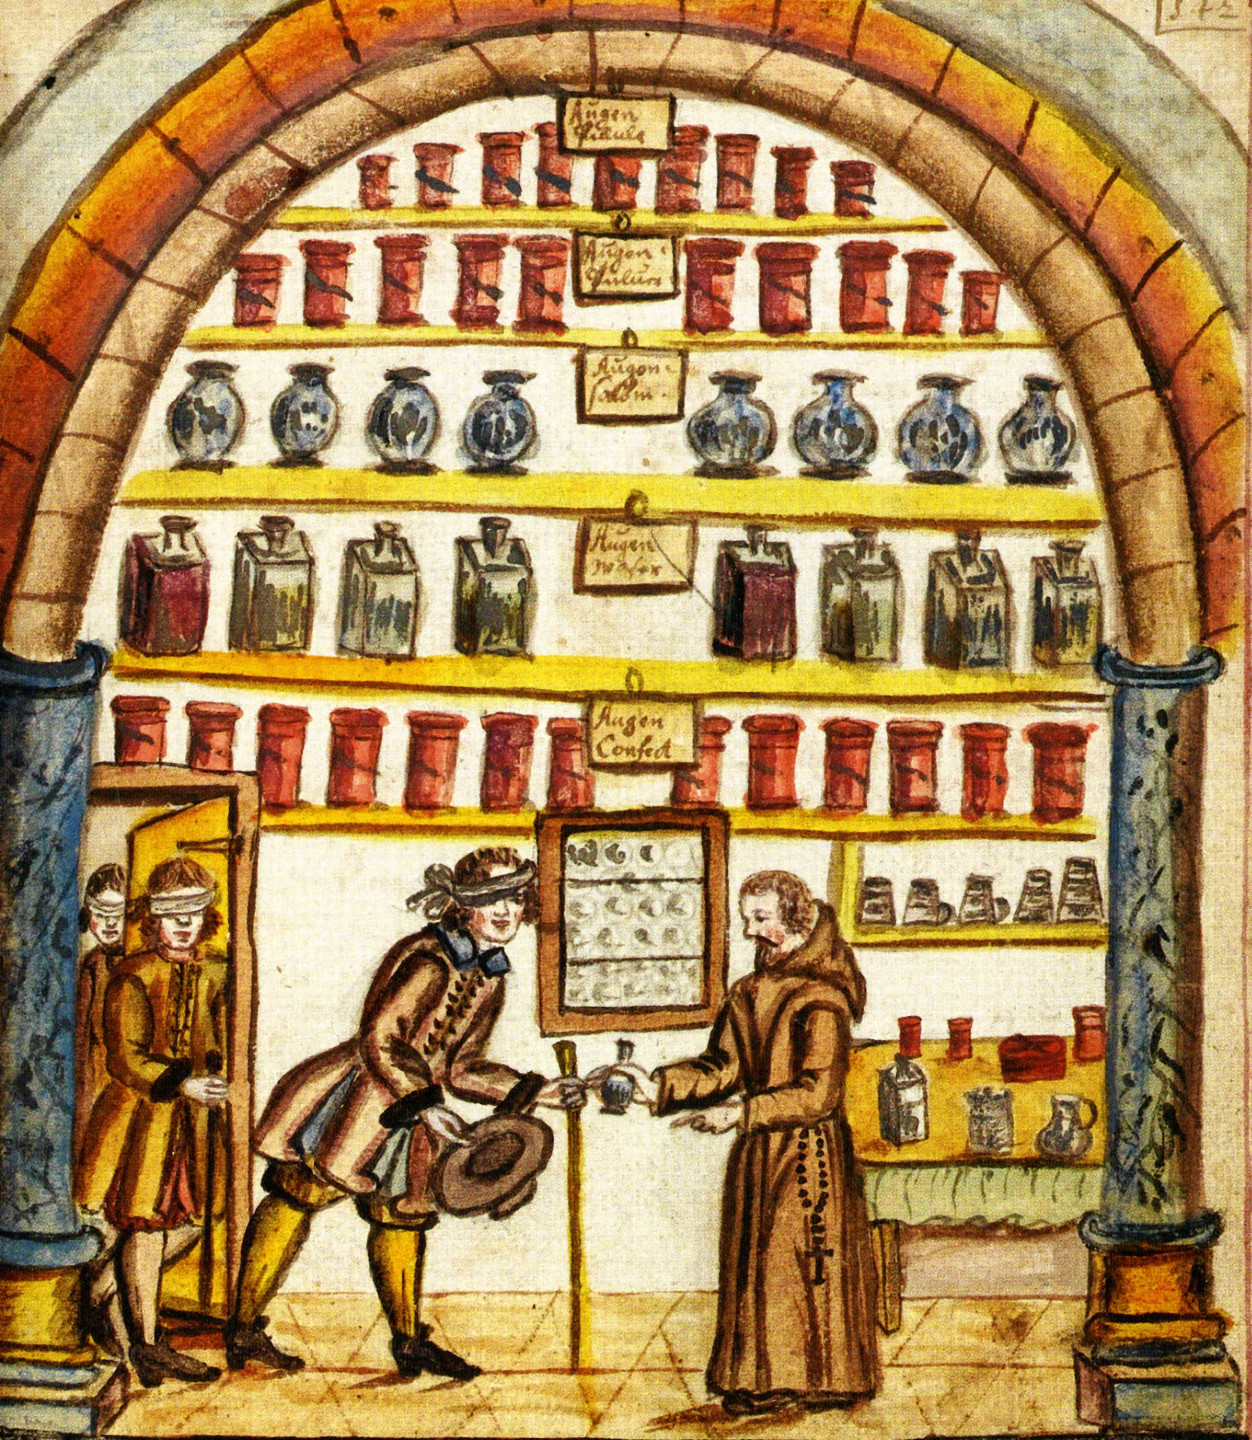 Augen
Augen
Pulver
Augen
Salbm
Augen
Wasser
Augen
Confect